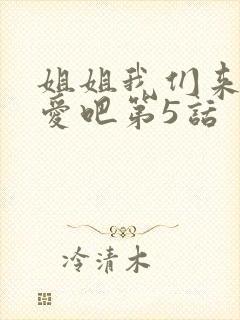 姐姐我们来
爱吧第5話
冷清木